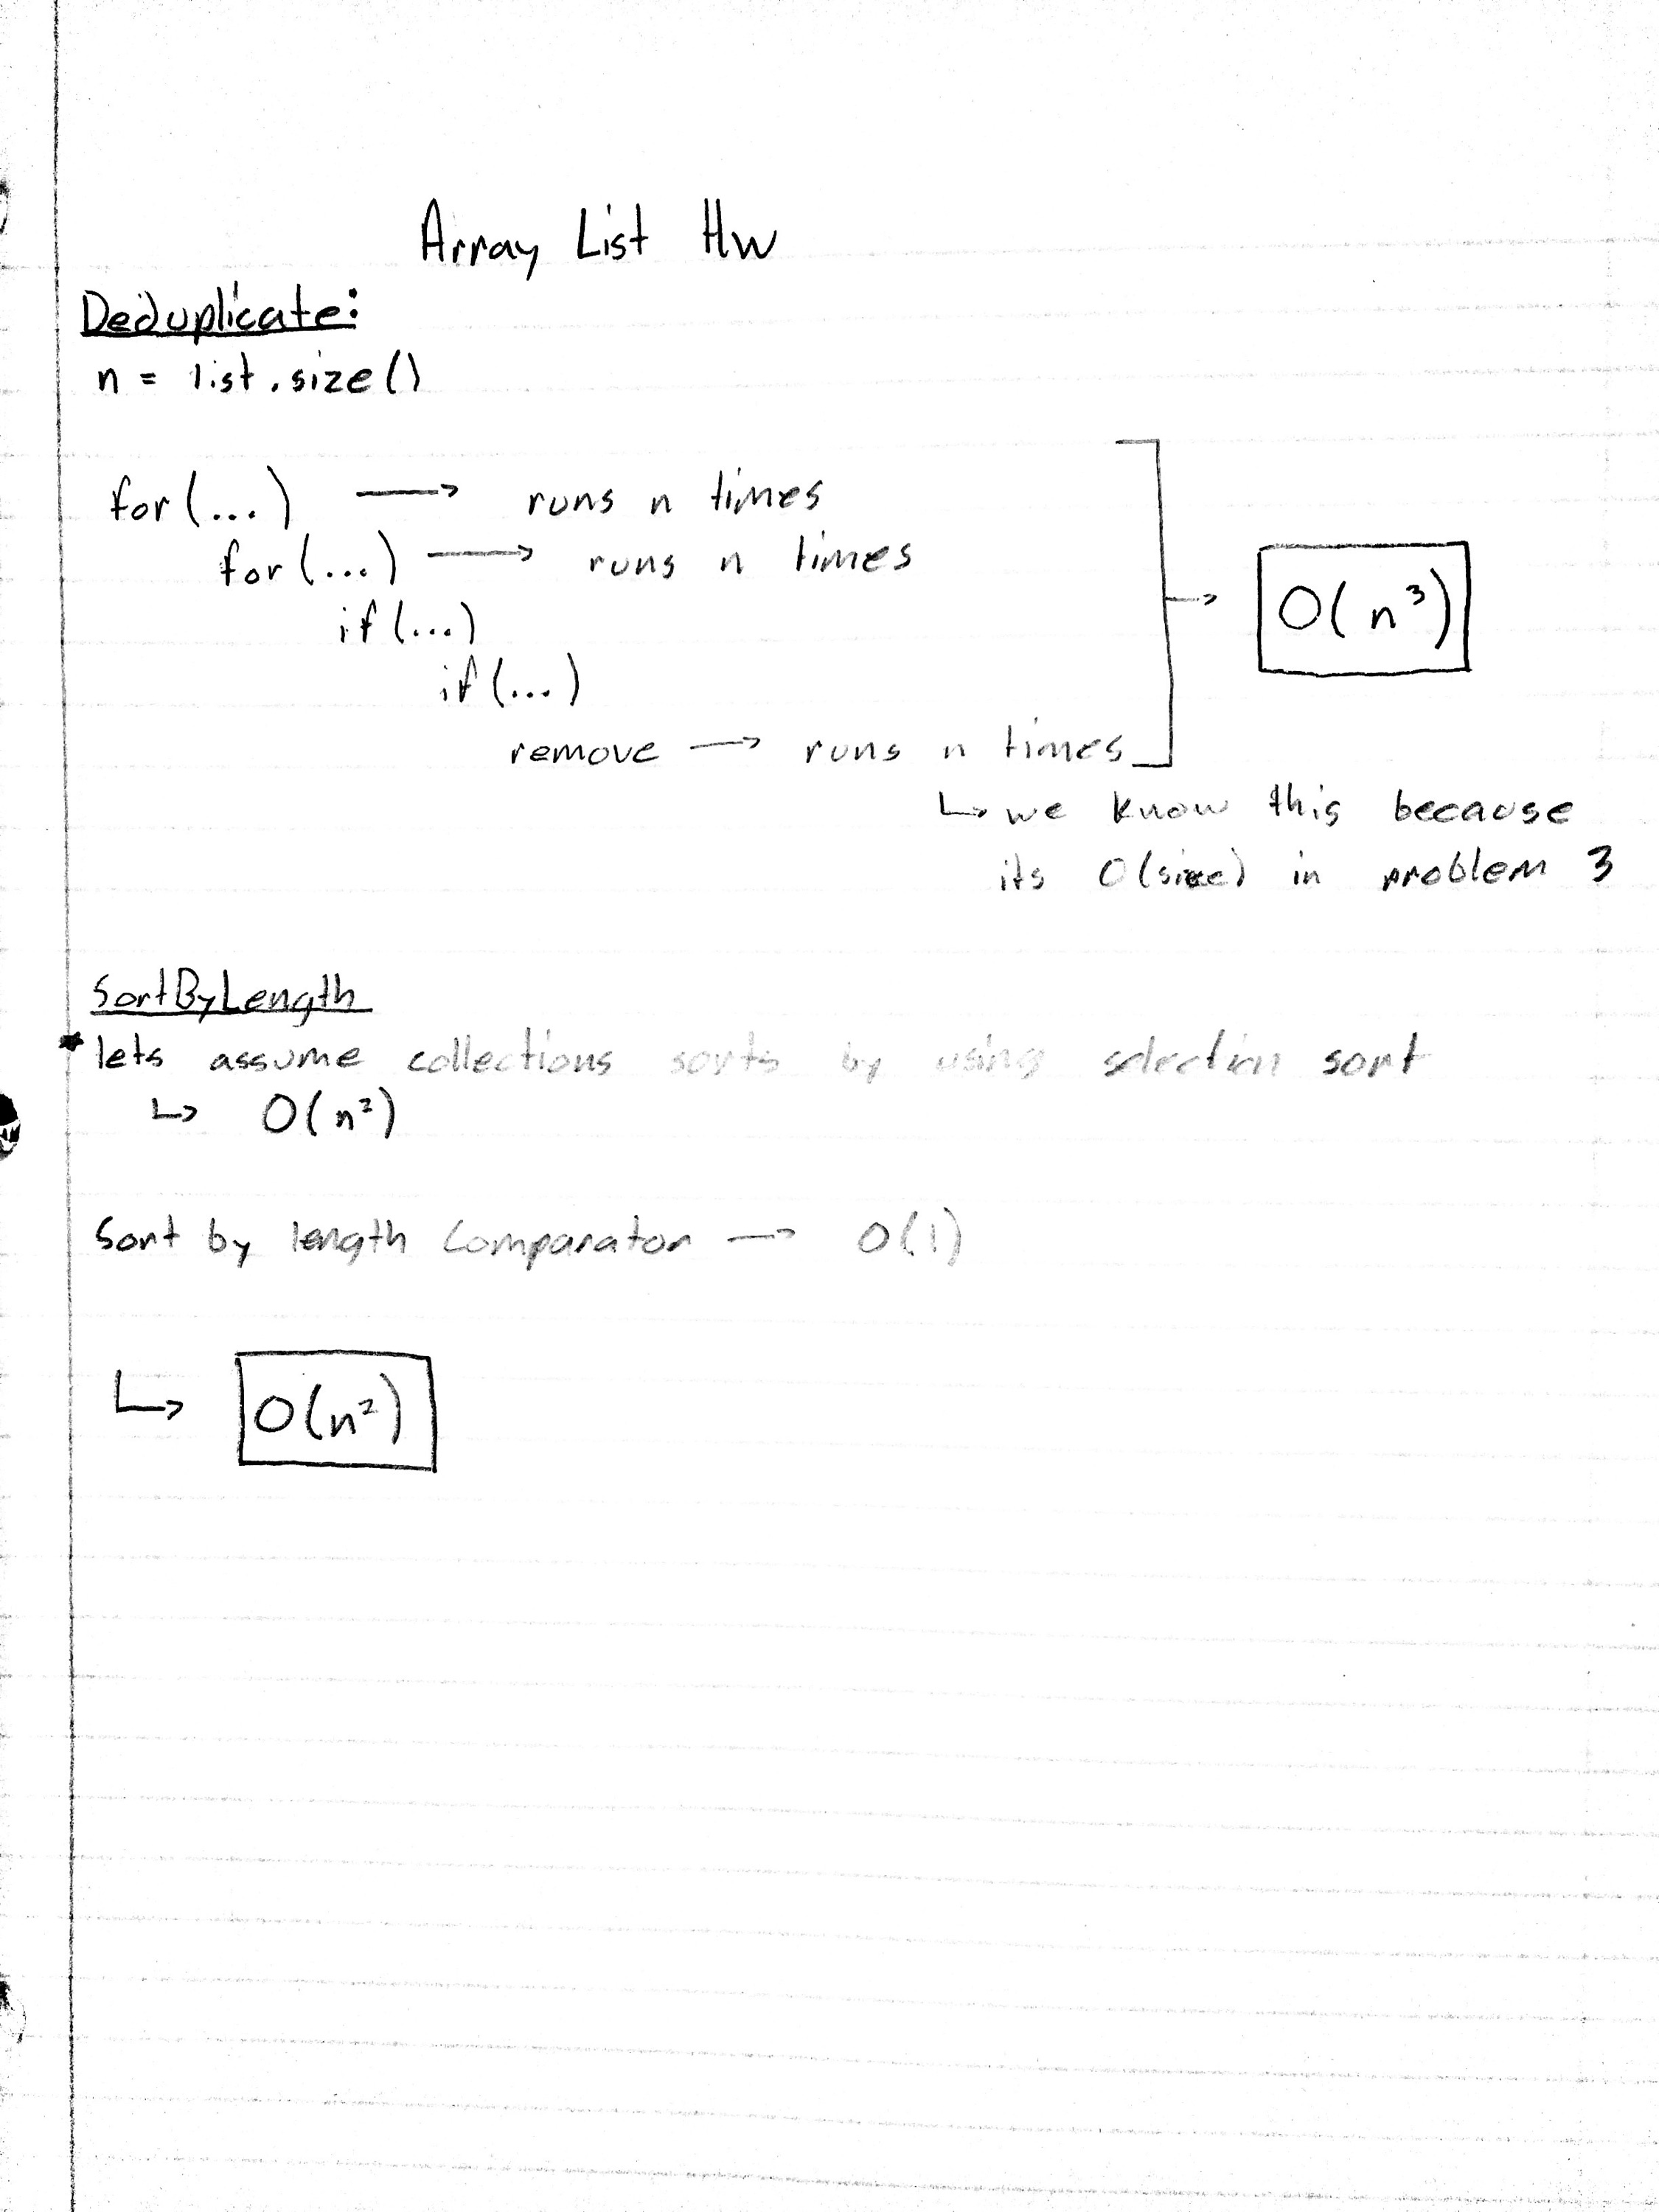 Array List Hw
Deduplicate:
n = list.size()
for(...) → runs n times
for(...) → runs n times
if(...)
if(...)
remove → runs n times
O(n³)
↳ we know this because
its O(size) in problem 3
SortByLength
* lets assume collections sorts by using selection sort
↳ O(n²)
Sort by length Comparator → O(1)
↳ O(n²)